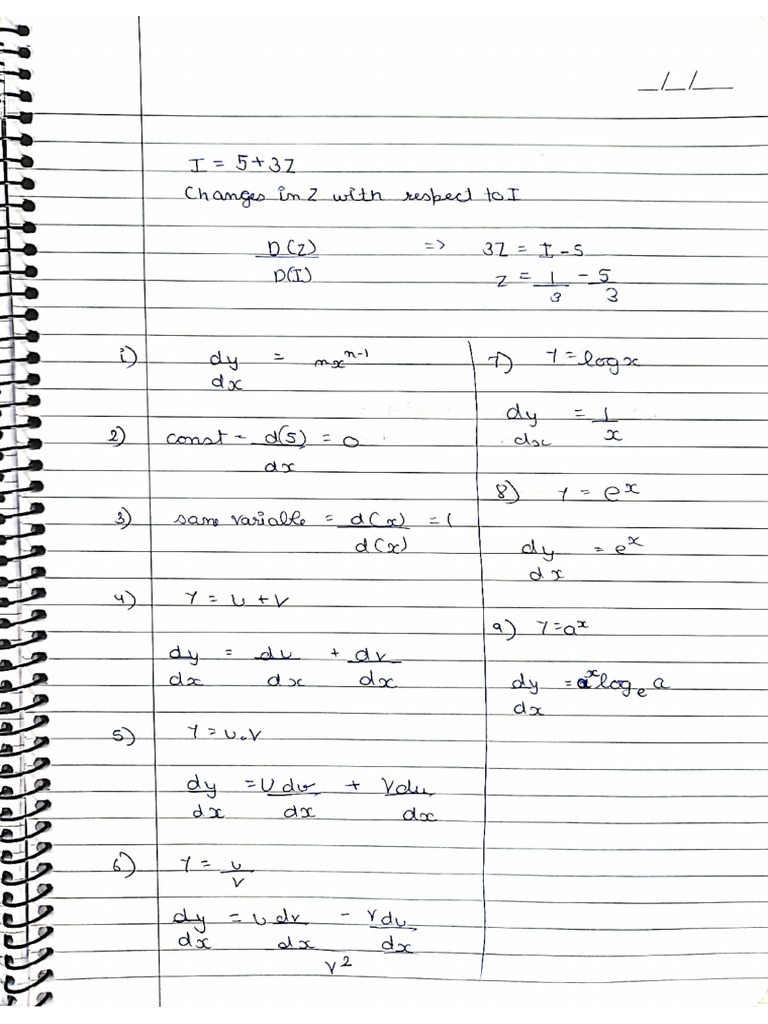 _/_/__
I = 5+3Z
Changes in Z with respect to I
D(Z)/D(I) => 3Z = I - 5
Z = 1/3 - 5/3
1) dy/dx = nx^(n-1)
2) const - d(5)/dx = 0
3) same variable = d(x)/d(x) = 1
4) Y = U + V
dy/dx = du/dx + dv/dx
5) Y = U.V
dy/dx = U dv/dx + V du/dx
6) Y = u/v
dy/dx = (u dv/dx - v du/dx)/v²
7) Y = log x
dy/dx = 1/x
8) Y = e^x
dy/dx = e^x
9) Y = a^x
dy/dx = a^x logₑ a